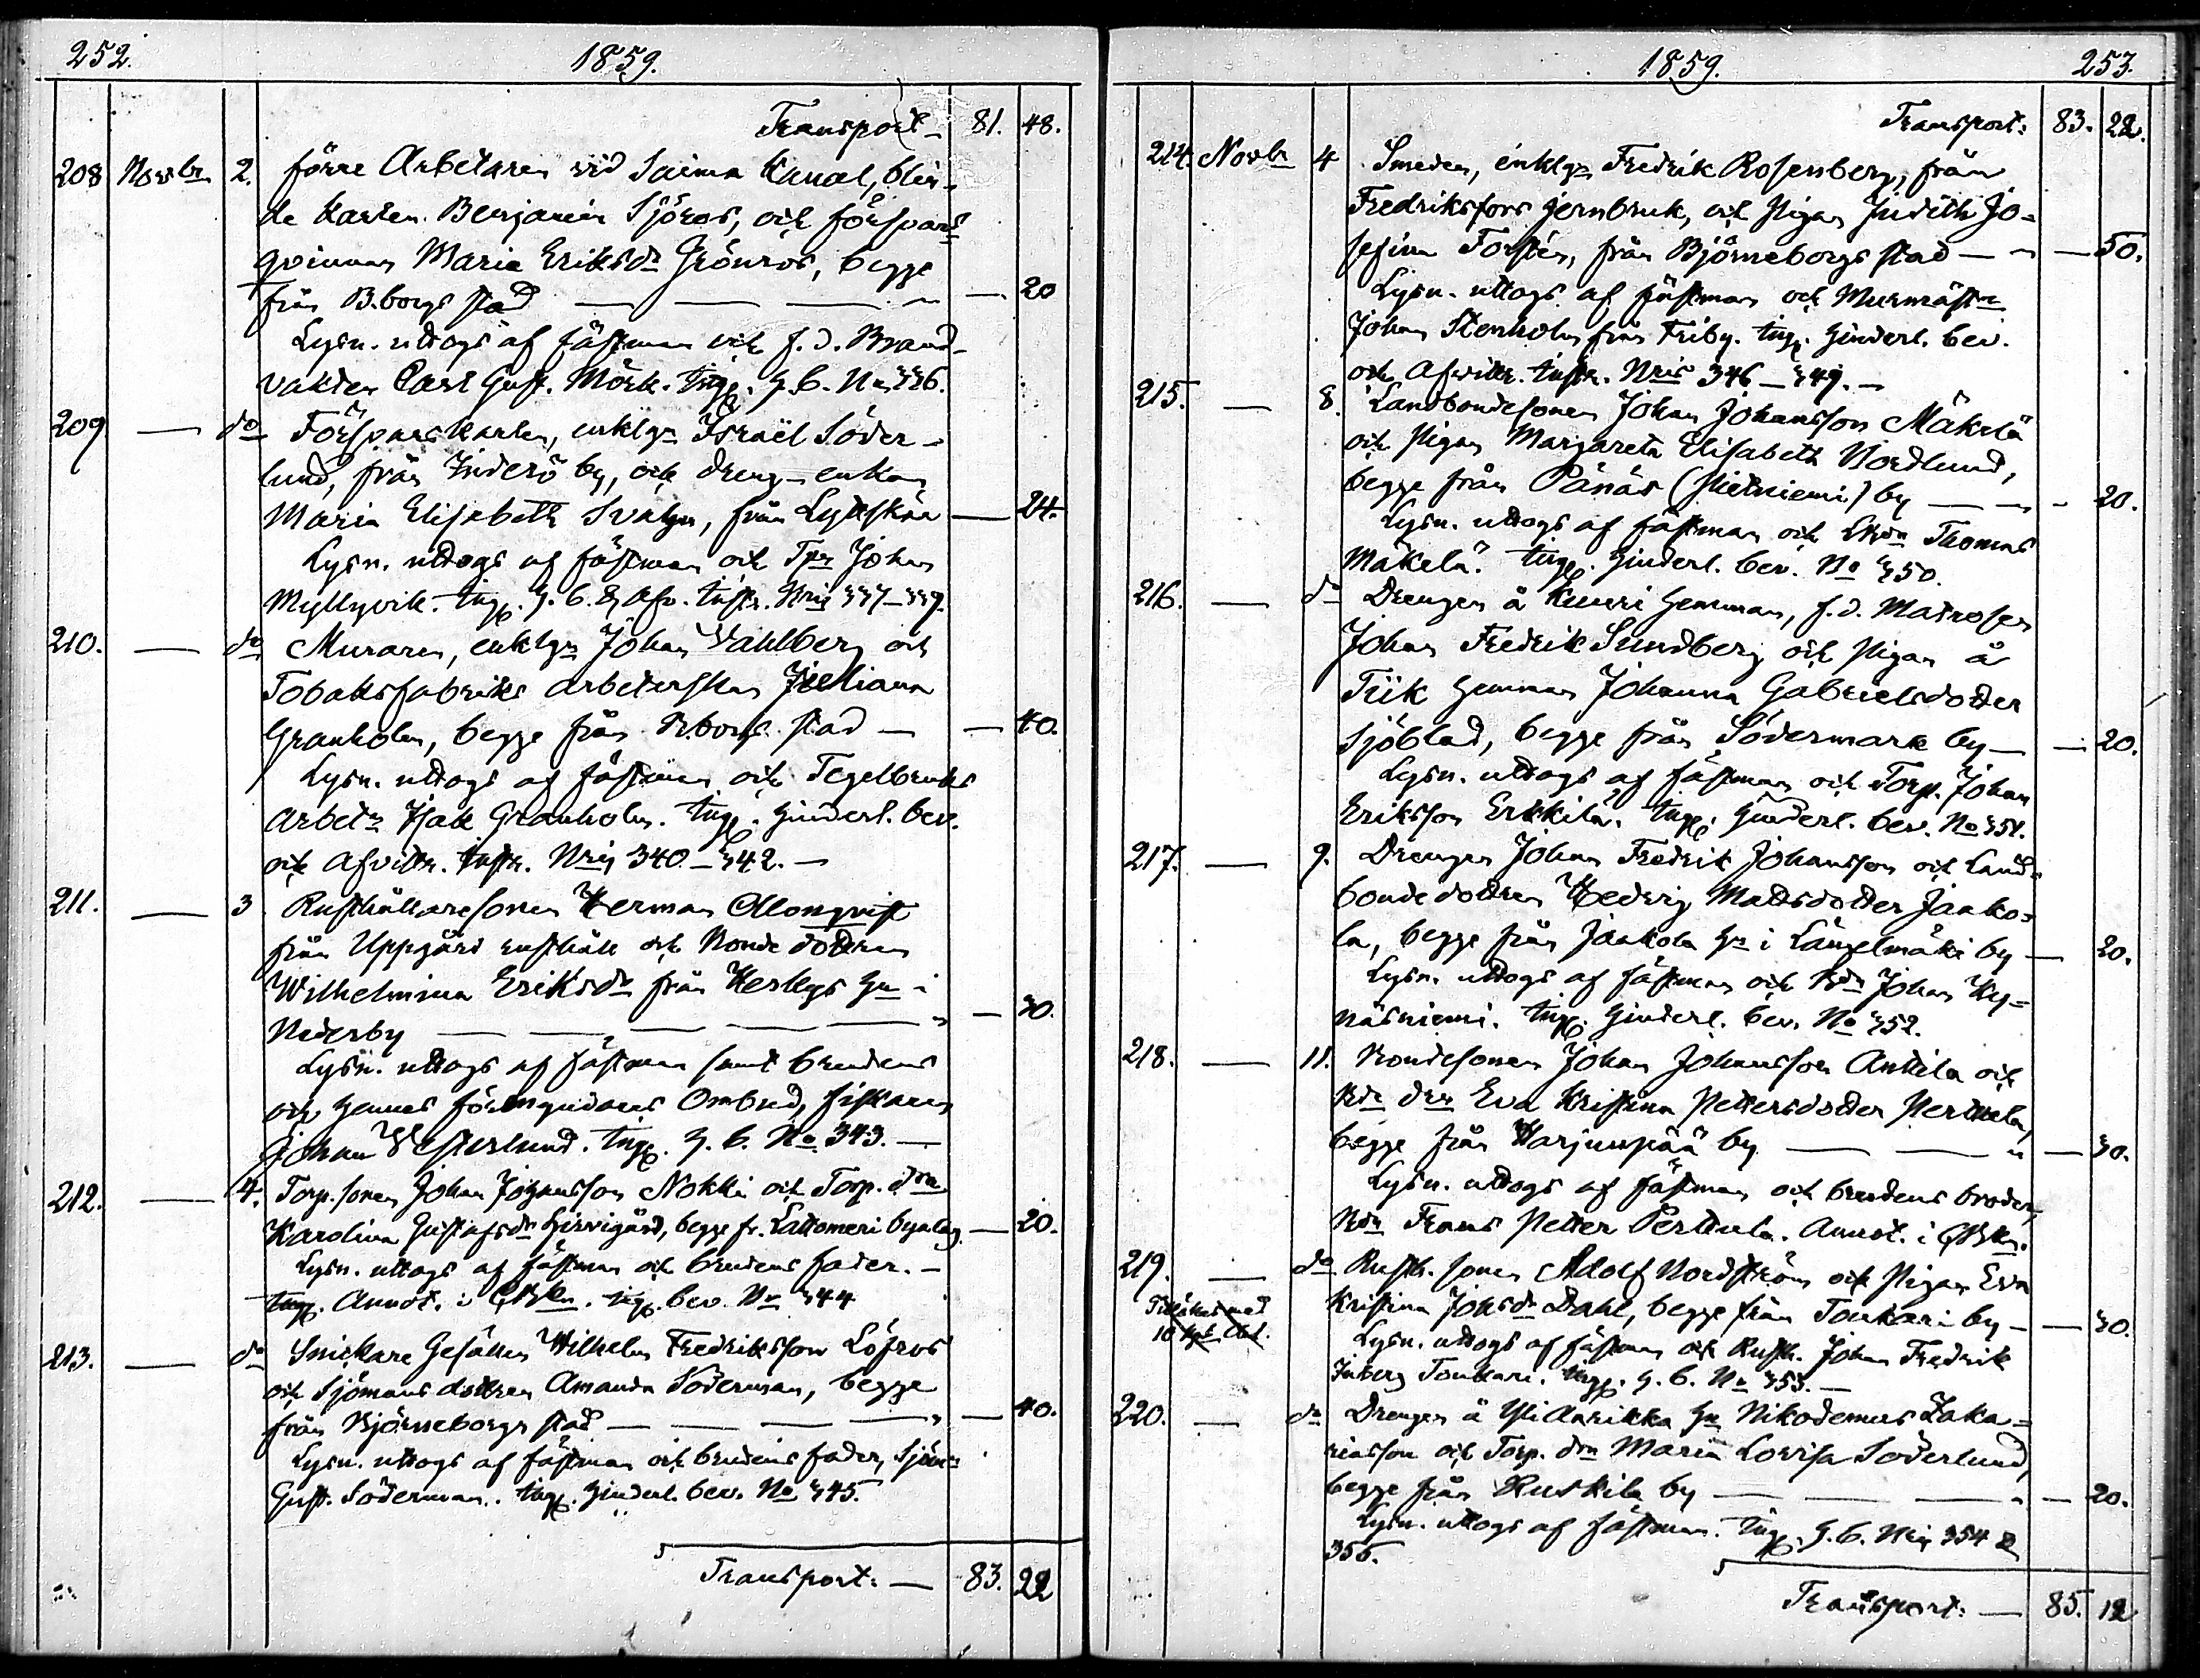 252. 1859.
Transport — 81. 48.
208 Novbr 2. förre Arbetaren vid Saima Kanal, blin-
de Karlen Benjamin Sjöros, och försvars
qvinnan Maria Eriksdr Grönros, begge
från B.borgs stad — — — " — 20
Lysn. uttogs af fästman och f. d. Brand-
vakten Carl Gust. Mörk. Ingp. h. b. No 336.
209 — do Försvarskarlen, enklgn Israël Söder-
lund, från Inderö by, och dreng-enkan
Maria Elisabeth Svahn, från Lyttskär — 24.
Lysn. uttogs af fästman och Tpr Johan
Myllyvik. Ingp. h. b. & Afv. Instr. Nris 337–339.
210. — do Muraren, enklgn Johan Wahlberg och
Tobaksfabriks arbeterskan Juliana
Granholm, begge från B.borgs stad — — 40.
Lysn. uttogs af fästman och Tegelbruks
Arbetn Isak Granholm. Ingp. hinderl. bev.
och Afvittr. Instr. Nris 340–342. —
211. — 3 Rusthållaresonen Herman Blomqvist
från Uppgård rusthåll och Bonde dottren
Wilhelmina Eriksdr från Herlegs hn i
Nederby — — — — " — 30.
Lysn. uttogs af fästman samt brudens
och hennes förmyndares Ombud, fiskaren
Johan Westerlund. Ingp. h. b. No 343. —
212. — 4. Torp.sonen Johan Johansson Nokki och Torp. drn
Karolina Gustafsdr Hirvigård, begge fr. Lattomeri byalag — 20.
Lysn. uttogs af fästman och brudens fader. —
Ingp. Annot. i Ingp. bev. No 344
213. — do Snickare Gesällen Wilhelm Fredriksson Löfros
och Sjömans dottren Amanda Söderman, begge
från Björneborgs stad — — — " — 40.
Lysn. uttogs af fästman och brudens fader, Sjöm:
Gust. Söderman. Ingp. hinderl. bev. No 345.
Transport: — 83. 22
1859. 253.
Transport: 83. 22.
214. Novbr 4 Smeden, enklgn Fredrik Rosenberg, från
Fredriksfors Jernbruk, och Pigan Judith Jo-
sefina Torstén, från Björneborgs stad — " — 50.
Lysn. uttogs af fästman och Murmästn
Johan Stenholm från Friby. Ingp. hinderl. bev.
och Afvittr. Instr. Nris 346–349. —
215. — 8. Landbondesonen Johan Johansson Mäkelä
och Pigan Margareta Elisabeth Nordlund,
begge från Pänäs (Pietniemi) by — " - 20.
Lysn. uttogs af fästman och Lbdn Thomas
Mäkelä. Ingp. hinderl. bev. No 350.
216. — do Drengen å Kuuri hemman, f. d. Matrosen
Johan Fredrik Sundberg och Pigan å
Tiik hemman Johanna Gabrielsdotter
Sjöblad, begge från Södermark by — — 20.
Lysn. uttogs af fästman och Torp. Johan
Eriksson Erkkilä. Ingp. hinderl. bev. No 351.
217. — 9. Drengen Johan Fredrik Johansson och Land-
bondedottren Hedvig Mattsdotter Jaako-
la, begge från Jaakola hn i Längelmäki by — 20.
Lysn. uttogs af fästman och Bdn Johan Ky-
näsniemi. Ingp. hinderl. bev. No 352.
218. — 11. Bondesonen Johan Johansson Anttila och
Bde drn Eva Kristina Pettersdotter Perttula,
begge från Harjunpää by — — " — 30.
Lysn. uttogs af fästman och brudens broder,
Bdn Frans Petter Perttula. Annot. i
219. — do Rusth. sonen Adolf Nordström och Pigan Eva
Kristina Johsdr Dahl, begge från Toukari by — — 30.
Lysn. uttogs af fästman och Rusth. Johan Fredrik
Inberg Toukari. Ingp. h. b. No 353. —
220. — do Drengen å Yli Aarikka hn Nikodemus Zaka-
riasson och Torp. drn Maria Lovisa Söderlund,
begge från Ruskila by — — — " — 20.
Lysn. uttogs af fästman. Ingp. h. b. Nris 354 &
355.
Transport: — 85. 12